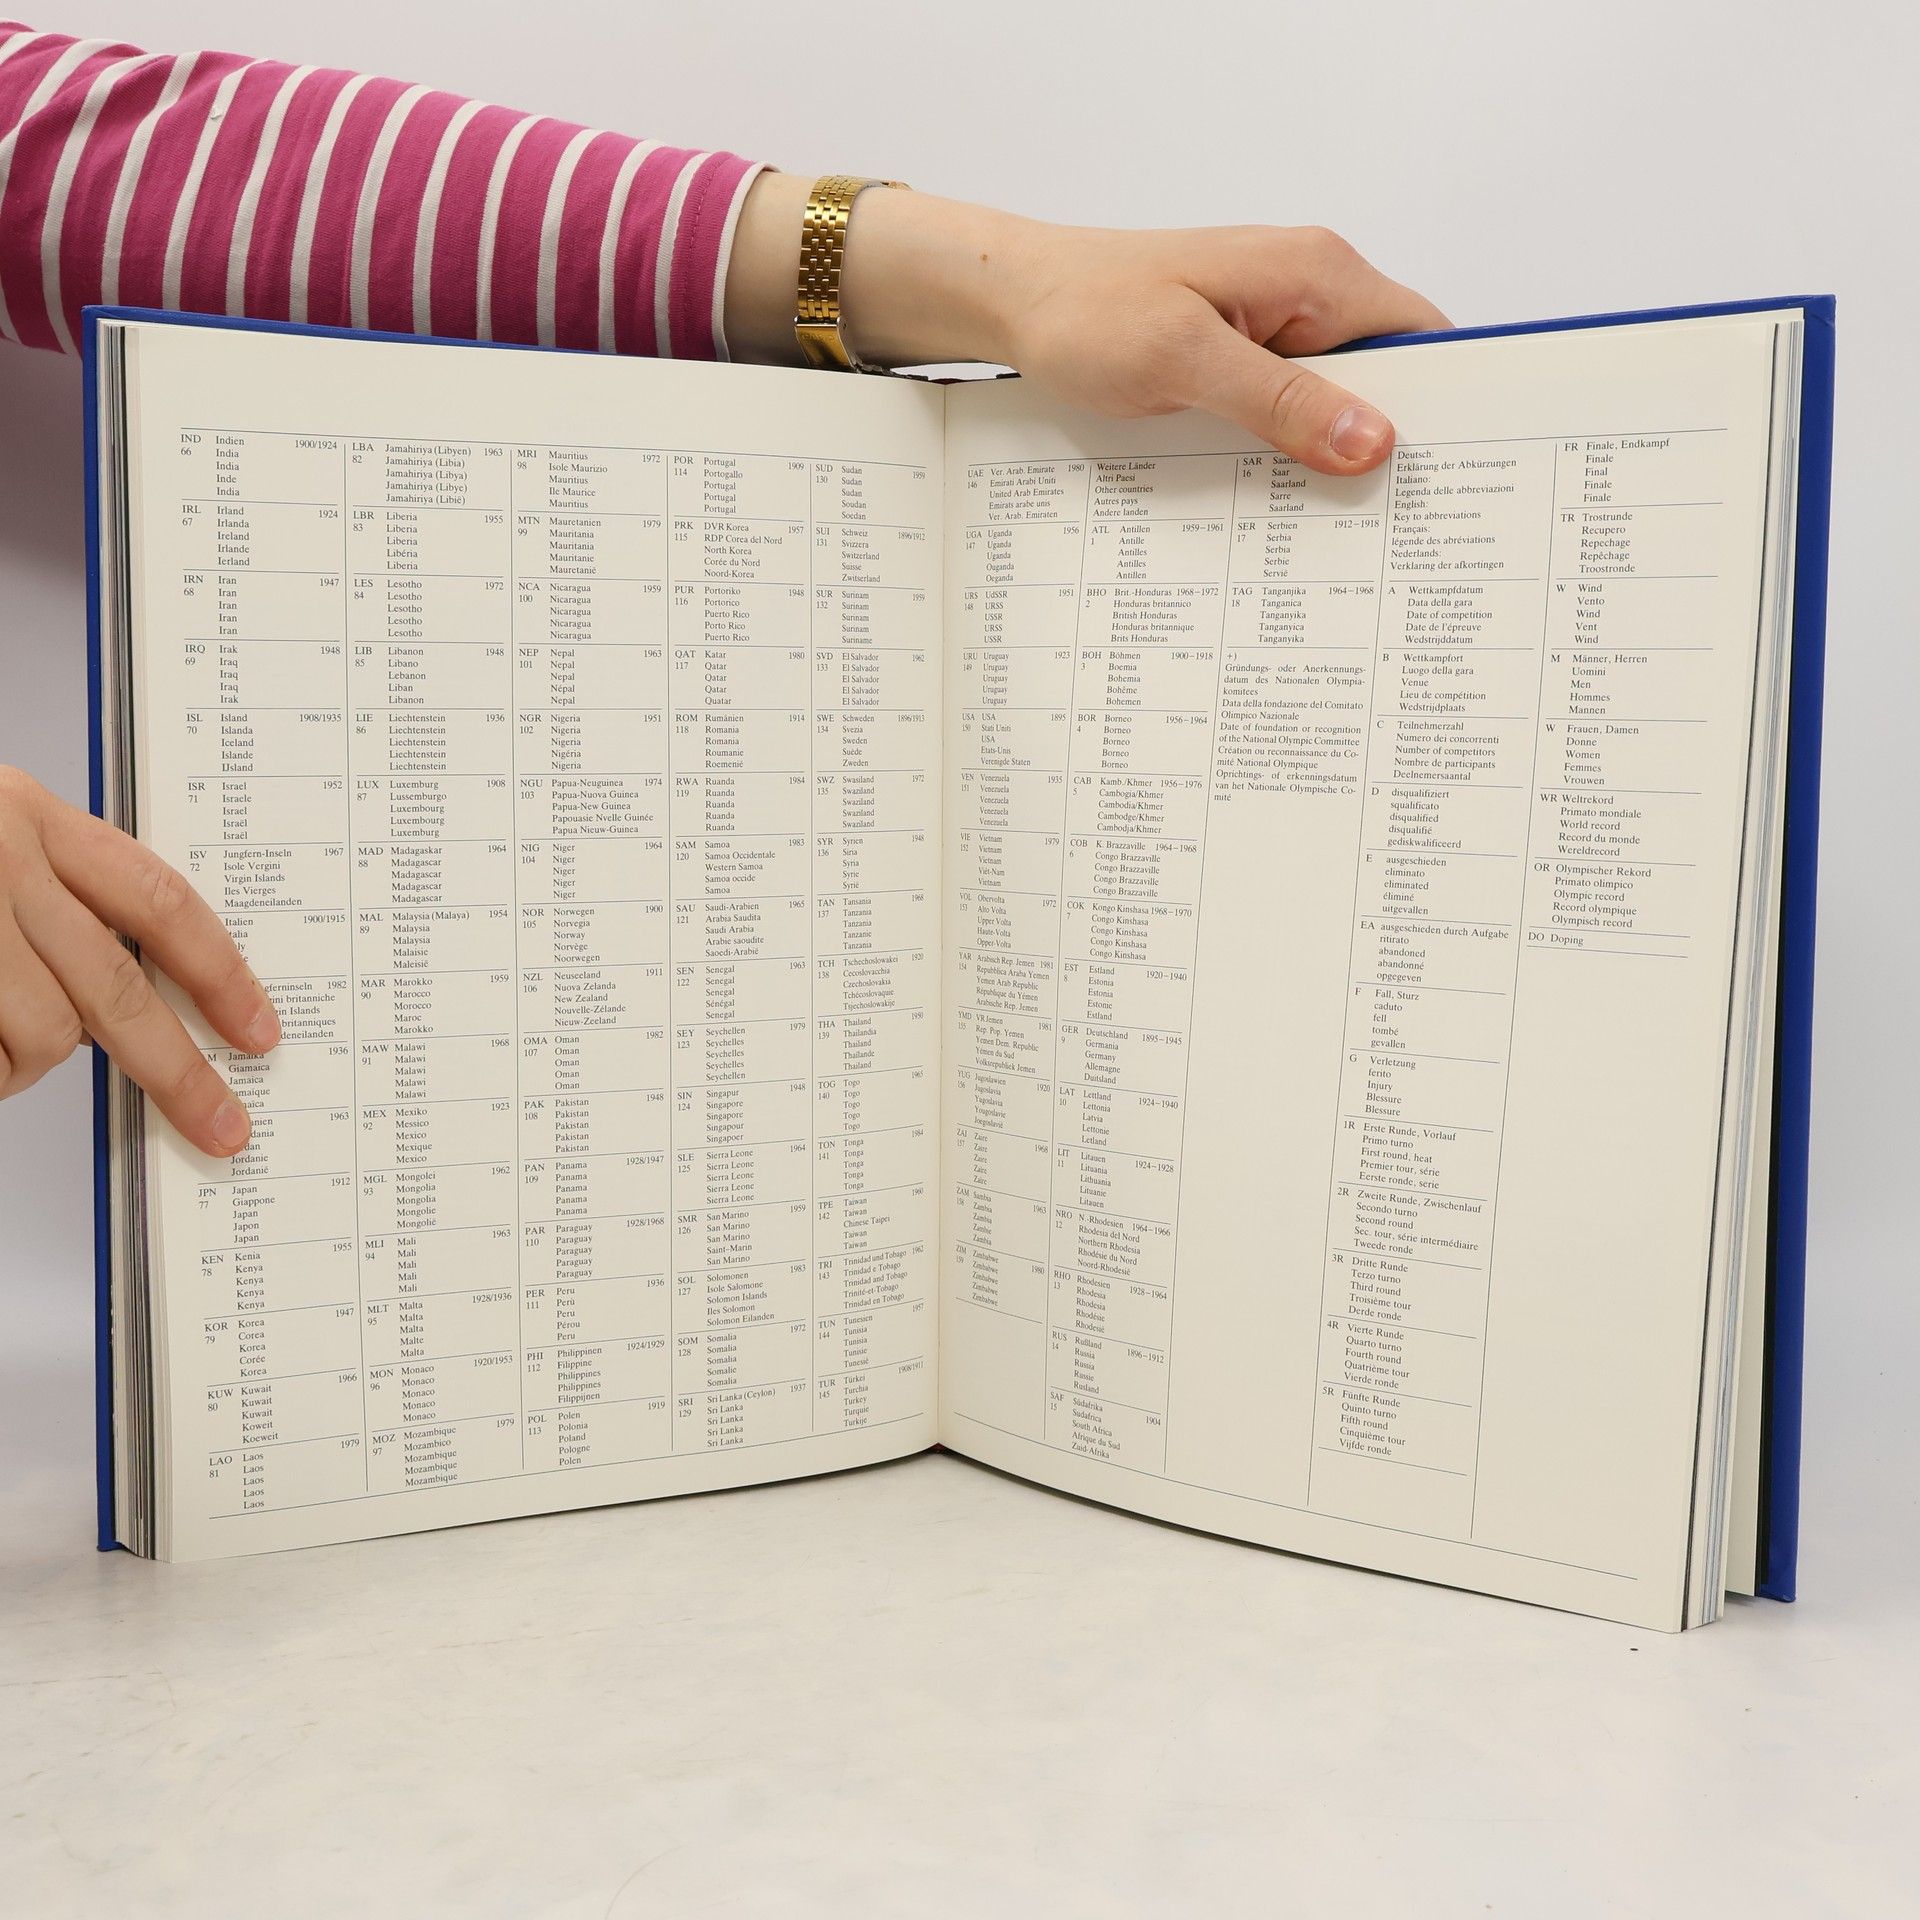 IND Indien 1900/1924
66 India
India
Inde
India
IRL Irland 1924
67 Irlanda
Ireland
Irlande
Ierland
IRN Iran 1947
68 Iran
Iran
Iran
Iran
IRQ Irak 1948
69 Iraq
Iraq
Iraq
Irak
ISL Island 1908/1935
70 Islanda
Iceland
Islande
IJsland
ISR Israel 1952
71 Israele
Israel
Israël
Israël
ISV Jungfern-Inseln 1967
72 Isole Vergini
Virgin Islands
Iles Vierges
Maagdeneilanden
Italien 1900/1915
1982
britanniche
Islands
britanniques
Jamaika 1936
Giamaica
Jamaica
1963
Jordanie
Jordanië
JPN Japan 1912
77 Giappone
Japan
Japon
Japan
KEN Kenia 1955
78 Kenya
Kenya
Kenya
Kenya
KOR Korea 1947
79 Corea
Korea
Corée
Korea
KUW Kuwait 1966
80 Kuwait
Kuwait
Koweit
Koeweit
LAO Laos 1979
81 Laos
Laos
Laos
Laos
LBA Jamahiriya (Libyen) 1963
82 Jamahiriya (Libia)
Jamahiriya (Libya)
Jamahiriya (Libye)
Jamahiriya (Libië)
LBR Liberia 1955
83 Liberia
Liberia
Libéria
Liberia
LES Lesotho 1972
84 Lesotho
Lesotho
Lesotho
Lesotho
LIB Libanon 1948
85 Libano
Lebanon
Liban
Libanon
LIE Liechtenstein 1936
86 Liechtenstein
Liechtenstein
Liechtenstein
Liechtenstein
LUX Luxemburg 1908
87 Lussemburgo
Luxembourg
Luxembourg
Luxemburg
MAD Madagaskar 1964
88 Madagascar
Madagascar
Madagascar
Madagascar
MAL Malaysia (Malaya) 1954
89 Malaysia
Malaysia
Malaisie
Maleisië
MAR Marokko 1959
90 Marocco
Morocco
Maroc
Marokko
MAW Malawi 1968
91 Malawi
Malawi
Malawi
Malawi
MEX Mexiko 1923
92 Messico
Mexico
Mexique
Mexico
MGL Mongolei 1962
93 Mongolia
Mongolia
Mongolie
Mongolië
MLI Mali 1963
94 Mali
Mali
Mali
Mali
MLT Malta 1928/1936
95 Malta
Malta
Malte
Malta
MON Monaco 1920/1953
96 Monaco
Monaco
Monaco
Monaco
MOZ Mozambique 1979
97 Mozambico
Mozambique
Mozambique
Mozambique
MRI Mauritius 1972
98 Isole Maurizio
Mauritius
Ile Maurice
Mauritius
MTN Mauretanien 1979
99 Mauritania
Mauritania
Mauritanie
Mauretanië
NCA Nicaragua 1959
100 Nicaragua
Nicaragua
Nicaragua
Nicaragua
NEP Nepal 1963
101 Nepal
Nepal
Népal
Nepal
NGR Nigeria 1951
102 Nigeria
Nigeria
Nigéria
Nigeria
NGU Papua-Neuguinea 1974
103 Papua-Nuova Guinea
Papua-New Guinea
Papouasie Nvelle Guinée
Papua Nieuw-Guinea
NIG Niger 1964
104 Niger
Niger
Niger
Niger
NOR Norwegen 1900
105 Norvegia
Norway
Norvège
Noorwegen
NZL Neuseeland 1911
106 Nuova Zelanda
New Zealand
Nouvelle-Zélande
Nieuw-Zeeland
OMA Oman 1982
107 Oman
Oman
Oman
Oman
PAK Pakistan 1948
108 Pakistan
Pakistan
Pakistan
Pakistan
PAN Panama 1928/1947
109 Panama
Panama
Panama
Panama
PAR Paraguay 1928/1968
110 Paraguay
Paraguay
Paraguay
Paraguay
PER Peru 1936
111 Perù
Peru
Pérou
Peru
PHI Philippinen 1924/1929
112 Filippine
Philippines
Philippines
Filippijnen
POL Polen 1919
113 Polonia
Poland
Pologne
Polen
POR Portugal 1909
114 Portogallo
Portugal
Portugal
Portugal
PRK DVR Korea 1957
115 RDP Corea del Nord
North Korea
Corée du Nord
Noord-Korea
PUR Portoriko 1948
116 Portorico
Puerto Rico
Porto Rico
Puerto Rico
QAT Katar 1980
117 Qatar
Qatar
Qatar
Quatar
ROM Rumänien 1914
118 Romania
Romania
Roumanie
Roemenië
RWA Ruanda 1984
119 Ruanda
Ruanda
Ruanda
Ruanda
SAM Samoa 1983
120 Samoa Occidentale
Western Samoa
Samoa occide
Samoa
SAU Saudi-Arabien 1965
121 Arabia Saudita
Saudi Arabia
Arabie saoudite
Saoedi-Arabië
SEN Senegal 1963
122 Senegal
Senegal
Sénégal
Senegal
SEY Seychellen 1979
123 Seychelles
Seychelles
Seychelles
Seychellen
SIN Singapur 1948
124 Singapore
Singapore
Singapour
Singapoer
SLE Sierra Leone 1964
125 Sierra Leone
Sierra Leone
Sierra Leone
Sierra Leone
SMR San Marino 1959
126 San Marino
San Marino
Saint-Marin
San Marino
SOL Solomonen 1983
127 Isole Salomone
Solomon Islands
Iles Solomon
Solomon Eilanden
SOM Somalia 1972
128 Somalia
Somalia
Somalie
Somalia
SRI Sri Lanka (Ceylon) 1937
129 Sri Lanka
Sri Lanka
Sri Lanka
Sri Lanka
SUD Sudan 1959
130 Sudan
Sudan
Soudan
Soedan
SUI Schweiz 1896/1912
131 Svizzera
Switzerland
Suisse
Zwitserland
SUR Surinam 1959
132 Surinam
Surinam
Surinam
Suriname
SVD El Salvador 1962
133 El Salvador
El Salvador
El Salvador
El Salvador
SWE Schweden 1896/1913
134 Svezia
Sweden
Suède
Zweden
SWZ Swasiland 1972
135 Swaziland
Swaziland
Swaziland
Swaziland
SYR Syrien 1948
136 Siria
Syria
Syrie
Syrië
TAN Tansania 1968
137 Tanzania
Tanzania
Tanzanie
Tanzania
TCH Tschechoslowakei 1920
138 Cecoslovacchia
Czechoslovakia
Tchécoslovaquie
Tsjechoslowakije
THA Thailand 1950
139 Thailandia
Thailand
Thailande
Thailand
TOG Togo 1965
140 Togo
Togo
Togo
Togo
TON Tonga 1984
141 Tonga
Tonga
Tonga
Tonga
TPE Taiwan 1960
142 Taiwan
Chinese Taipei
Taiwan
Taiwan
TRI Trinidad und Tobago 1962
143 Trinidad e Tobago
Trinidad and Tobago
Trinité-et-Tobago
Trinidad en Tobago
TUN Tunesien 1957
144 Tunisia
Tunisia
Tunisie
Tunesië
TUR Türkei 1908/1911
145 Turchia
Turkey
Turquie
Turkije
UAE Ver. Arab. Emirate 1980
146 Emirati Arabi Uniti
United Arab Emirates
Emirats arabe unis
Ver. Arab. Emiraten
UGA Uganda 1956
147 Uganda
Uganda
Ouganda
Oeganda
URS UdSSR 1951
148 URSS
USSR
URSS
USSR
URU Uruguay 1923
149 Uruguay
Uruguay
Uruguay
Uruguay
USA USA 1895
150 Stati Uniti
USA
Etats-Unis
Verenigde Staten
VEN Venezuela 1935
151 Venezuela
Venezuela
Venezuela
Venezuela
VIE Vietnam 1979
152 Vietnam
Vietnam
Viêt-Nam
Vietnam
VOL Obervolta 1972
153 Alto Volta
Upper Volta
Haute-Volta
Opper-Volta
YAR Arabisch Rep. Jemen 1981
154 Repubblica Araba Yemen
Yemen Arab Republic
République du Yémen
Arabische Rep. Jemen
YMD VR Jemen 1981
155 Rep. Pop. Yemen
Yemen Dem. Republic
Yémen du Sud
Volksrepubliek Jemen
YUG Jugoslawien 1920
156 Jugoslavia
Yugoslavia
Yougoslavie
Joegoslavië
ZAI Zaire 1968
157 Zaire
Zaire
Zaïre
Zaïre
ZAM Sambia 1963
158 Zambia
Zambia
Zambie
Zambia
ZIM Zimbabwe 1980
159 Zimbabwe
Zimbabwe
Zimbabwe
Zimbabwe
Weitere Länder
Altri Paesi
Other countries
Autres pays
Andere landen
ATL Antillen 1959–1961
1 Antille
Antilles
Antilles
Antillen
BHO Brit.-Honduras 1968–1972
2 Honduras britannico
British Honduras
Honduras britannique
Brits Honduras
BOH Böhmen 1900–1918
3 Boemia
Bohemia
Bohême
Bohemen
BOR Borneo 1956–1964
4 Borneo
Borneo
Borneo
Borneo
CAB Kamb./Khmer 1956–1976
5 Cambogia/Khmer
Cambodia/Khmer
Cambodge/Khmer
Cambodja/Khmer
COB K. Brazzaville 1964–1968
6 Congo Brazzaville
Congo Brazzaville
Congo Brazzaville
Congo Brazzaville
COK Kongo Kinshasa 1968–1970
7 Congo Kinshasa
Congo Kinshasa
Congo Kinshasa
Congo Kinshasa
EST Estland 1920–1940
8 Estonia
Estonia
Estonie
Estland
GER Deutschland 1895–1945
9 Germania
Germany
Allemagne
Duitsland
LAT Lettland 1924–1940
10 Lettonia
Latvia
Lettonie
Letland
LIT Litauen 1924–1928
11 Lituania
Lithuania
Lituanie
Litauen
NRO N.-Rhodesien 1964–1966
12 Rhodesia del Nord
Northern Rhodesia
Rhodésie du Nord
Noord-Rhodesië
RHO Rhodesien 1928–1964
13 Rhodesia
Rhodesia
Rhodésie
Rhodesië
RUS Rußland 1896–1912
14 Russia
Russia
Russie
Rusland
SAF Südafrika 1904
15 Sudafrica
South Africa
Afrique du Sud
Zuid-Afrika
SAR
16 Saar
Saarland
Sarre
Saarland
SER Serbien 1912–1918
17 Serbia
Serbia
Serbie
Servië
TAG Tanganjika 1964–1968
18 Tanganica
Tanganyika
Tanganyica
Tanganyika
+)
Gründungs- oder Anerkennungs-
datum des Nationalen Olympia-
komitees
Data della fondazione del Comitato
Olimpico Nazionale
Date of foundation or recognition
of the National Olympic Committee
Création ou reconnaissance du Co-
mité National Olympique
Oprichtings- of erkenningsdatum
van het Nationale Olympische Co-
mité
Deutsch:
Erklärung der Abkürzungen
Italiano:
Legenda delle abbreviazioni
English:
Key to abbreviations
Français:
légende des abréviations
Nederlands:
Verklaring der afkortingen
A Wettkampfdatum
Data della gara
Date of competition
Date de l'épreuve
Wedstrijddatum
B Wettkampfort
Luogo della gara
Venue
Lieu de compétition
Wedstrijdplaats
C Teilnehmerzahl
Numero dei concorrenti
Number of competitors
Nombre de participants
Deelnemersaantal
D disqualifiziert
squalificato
disqualified
disqualifié
gediskwalificeerd
E ausgeschieden
eliminato
eliminated
éliminé
uitgevallen
EA ausgeschieden durch Aufgabe
ritirato
abandoned
abandonné
opgegeven
F Fall, Sturz
caduto
fell
tombé
gevallen
G Verletzung
ferito
Injury
Blessure
Blessure
1R Erste Runde, Vorlauf
Primo turno
First round, heat
Premier tour, série
Eerste ronde, serie
2R Zweite Runde, Zwischenlauf
Secondo turno
Second round
Sec. tour, série intermédiaire
Tweede ronde
3R Dritte Runde
Terzo turno
Third round
Troisième tour
Derde ronde
4R Vierte Runde
Quarto turno
Fourth round
Quatrième tour
Vierde ronde
5R Fünfte Runde
Quinto turno
Fifth round
Cinquième tour
Vijfde ronde
FR Finale, Endkampf
Finale
Final
Finale
Finale
TR Trostrunde
Recupero
Repechage
Repêchage
Troostronde
W Wind
Vento
Wind
Vent
Wind
M Männer, Herren
Uomini
Men
Hommes
Mannen
W Frauen, Damen
Donne
Women
Femmes
Vrouwen
WR Weltrekord
Primato mondiale
World record
Record du monde
Wereldrecord
OR Olympischer Rekord
Primato olimpico
Olympic record
Record olympique
Olympisch record
DO Doping